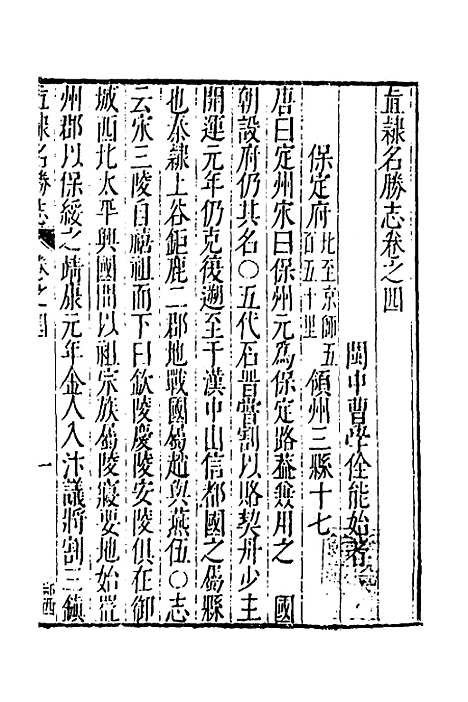 直隸名勝志卷之四
閩中曹學佺能始著
保定府北至京師五百五十里領州三縣十七
唐曰定州宋曰保州元爲保定路蓋兼用之　國
朝設府仍其名○五代石晉嘗割以賂契丹少主
開運元年仍克復遡至于漢中山信都國之屬縣
也秦隸上谷鉅鹿二郡地戰國屬趙與燕伍○志
云宋三陵自禧祖而下曰欽陵慶陵安陵俱在御
城西北太平興國間以祖宗族屬陵寢要地始置
州郡以保綏之靖康元年金人入汴議將割三鎮
直隸名勝志
卷之四
一